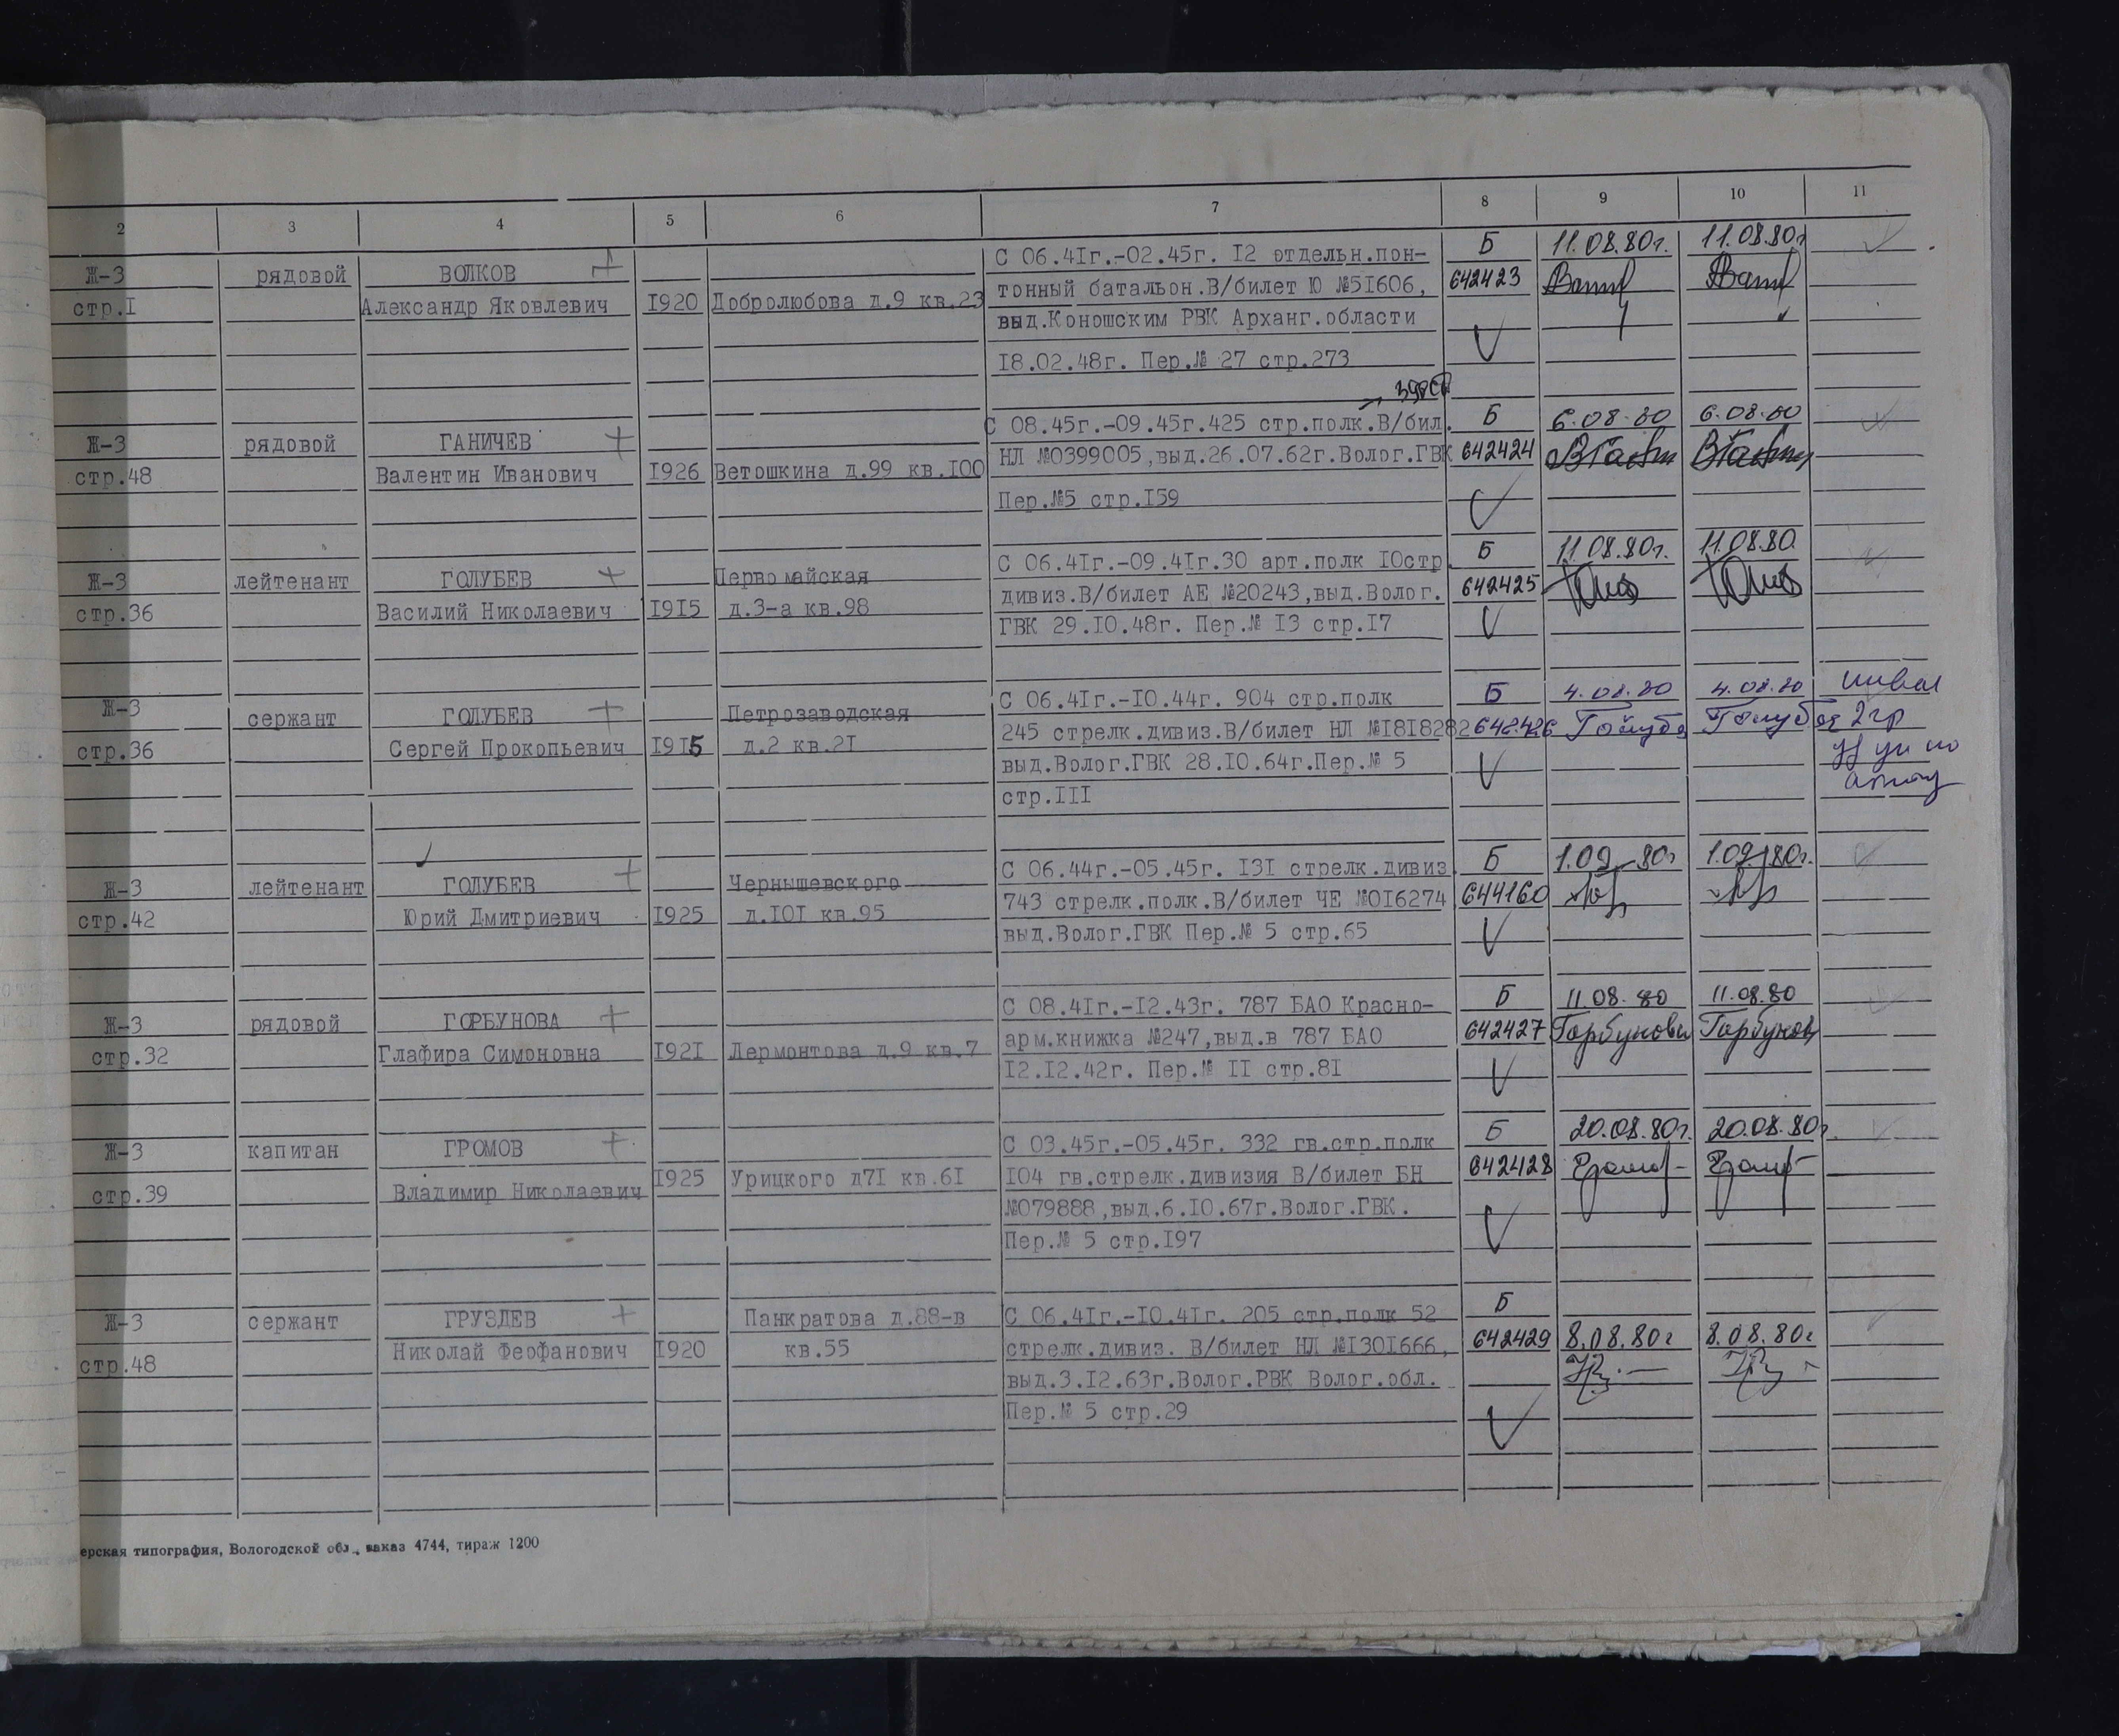 2 3 4 5 6 7 8 9 10 11
Ж-3 рядовой ВОЛКОВ С 06.41г.-02.45г. 12 отдельн.пон- Б 11.08.80г. 11.08.80г
стр.1 Александр Яковлевич 1920 Добролюбова д.9 кв.23 тонный батальон.В/билет Ю №51606, 642423
выд.Коношским РВК Арханг.области
18.02.48г. Пер.№ 27 стр.273
Ж-3 рядовой ГАНИЧЕВ С 08.45г.-09.45г.425 стр.полк.В/бил. Б 6.08.80 6.08.80
стр.48 Валентин Иванович 1926 Ветошкина д.99 кв.100 НЛ №0399005,выд.26.07.62г.Волог.ГВК 642424
Пер.№5 стр.159
Ж-3 лейтенант ГОЛУБЕВ Первомайская С 06.41г.-09.41г.30 арт.полк 10стр. Б 11.08.80г. 11.08.80
стр.36 Василий Николаевич 1915 д.3-а кв.98 дивиз.В/билет АЕ №20243,выд.Волог. 642425
ГВК 29.10.48г. Пер.№ 13 стр.17
Ж-3 сержант ГОЛУБЕВ Петрозаводская С 06.41г.-10.44г. 904 стр.полк Б 4.08.80 4.08.80 инвал
стр.36 Сергей Прокопьевич 1915 д.2 кв.21 245 стрелк.дивиз.В/билет НЛ №1818282 642426 2гр
выд.Волог.ГВК 28.10.64г.Пер.№ 5
стр.111
Ж-3 лейтенант ГОЛУБЕВ Чернышевского С 06.44г.-05.45г. 131 стрелк.дивиз. Б 1.09.80г 1.09.80г.
стр.42 Юрий Дмитриевич 1925 д.101 кв.95 743 стрелк.полк.В/билет ЧЕ №016274 644160
выд.Волог.ГВК Пер.№ 5 стр.65
Ж-3 рядовой ГОРБУНОВА С 08.41г.-12.43г. 787 БАО Красно- Б 11.08.80 11.08.80
стр.32 Глафира Симоновна 1921 Лермонтова д.9 кв.7 арм.книжка №247,выд.в 787 БАО 642427 Горбунова Горбунов
12.12.42г. Пер.№ 11 стр.81
Ж-3 капитан ГРОМОВ С 03.45г.-05.45г. 332 гв.стр.полк Б 20.08.80г. 20.08.80г.
стр.39 Владимир Николаевич 1925 Урицкого д71 кв.61 104 гв.стрелк.дивизия В/билет БН 642428
№079888,выд.6.10.67г.Волог.ГВК.
Пер.№ 5 стр.197
Ж-3 сержант ГРУЗДЕВ Панкратова д.88-в С 06.41г.-10.41г. 205 стр.полк 52 Б
стр.48 Николай Феофанович 1920 кв.55 стрелк.дивиз. В/билет НЛ №1301666, 642429 8.08.80г 8.08.80г
выд.3.12.63г.Волог.РВК Волог.обл.
Пер.№ 5 стр.29
ерская типография, Вологодской обл., заказ 4744, тираж 1200